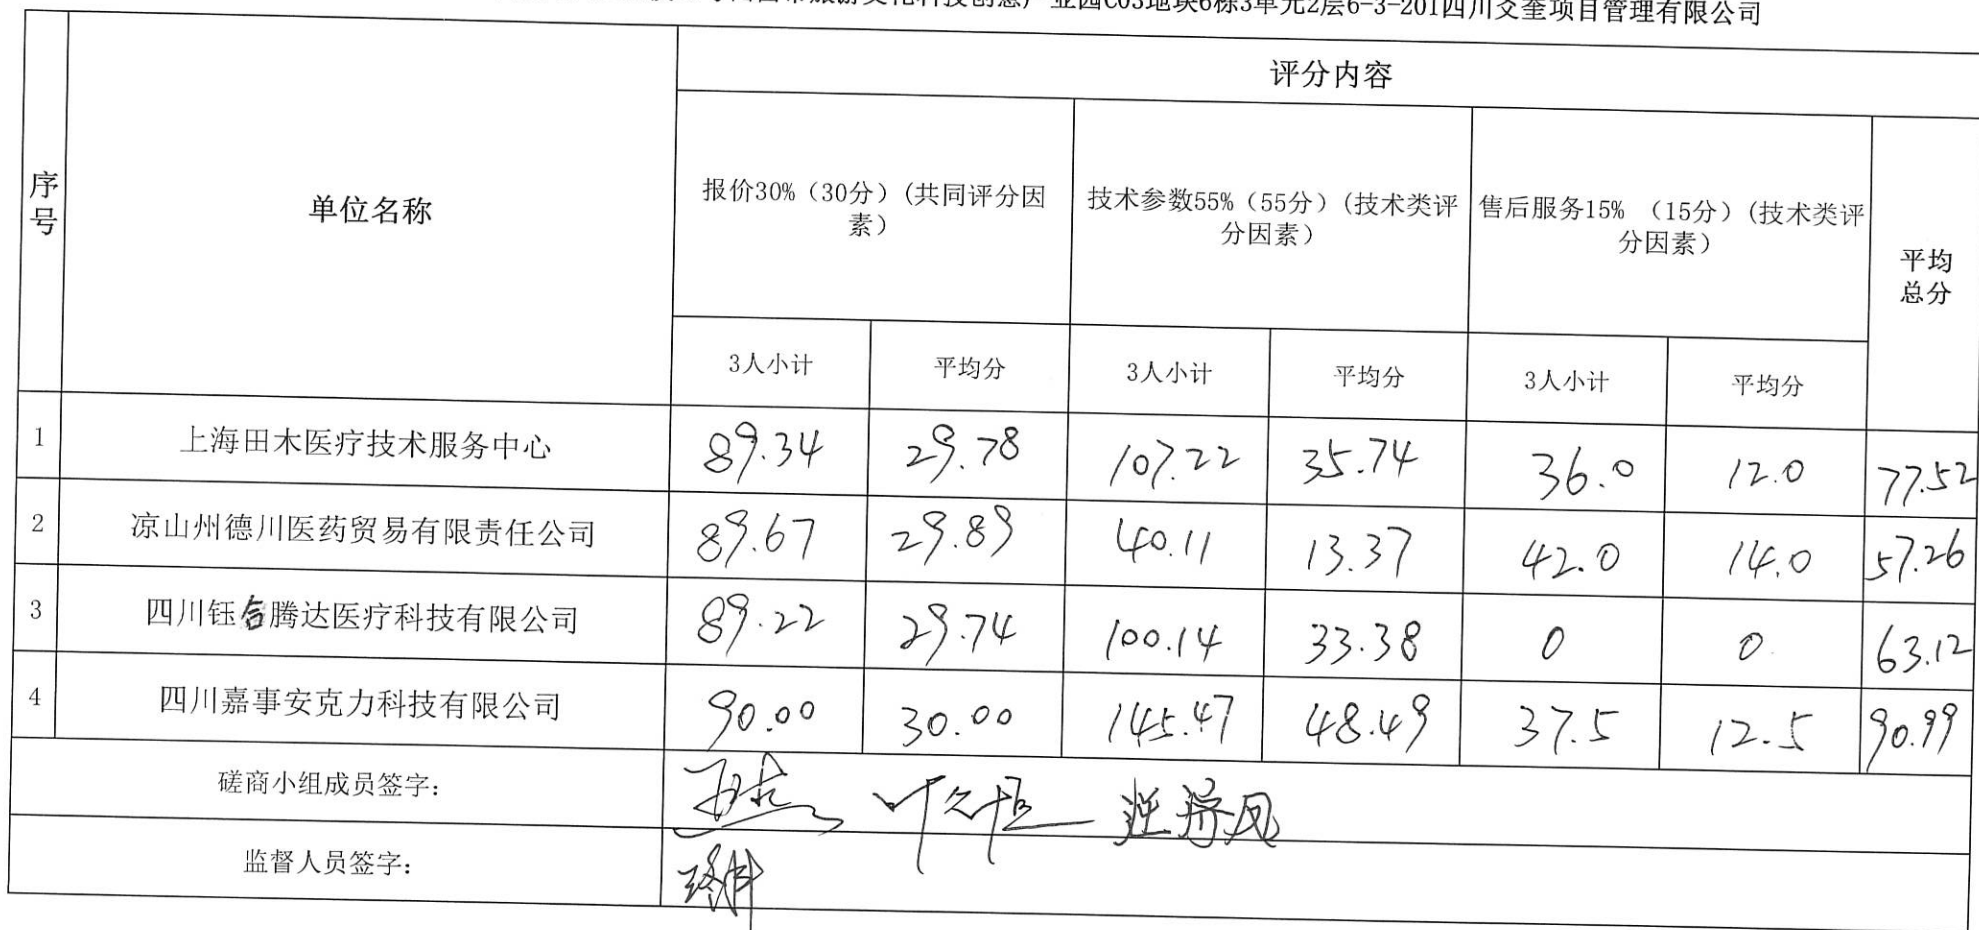 业园C03地块6栋3单元2层6-3-201四川爻奎项目管理有限公司
评分内容
序号
单位名称
报价30%（30分）(共同评分因
素）
技术参数55%（55分）(技术类评
分因素）
售后服务15% （15分）(技术类评
分因素）
平均
总分
3人小计 平均分 3人小计 平均分 3人小计 平均分
1 上海田木医疗技术服务中心 89.34 29.78 107.22 35.74 36.0 12.0 77.52
2 凉山州德川医药贸易有限责任公司 89.67 29.89 40.11 13.37 42.0 14.0 57.26
3 四川钰合腾达医疗科技有限公司 89.22 29.74 100.14 33.38 0 0 63.12
4 四川嘉事安克力科技有限公司 90.00 30.00 145.47 48.49 37.5 12.5 90.99
磋商小组成员签字：
监督人员签字：